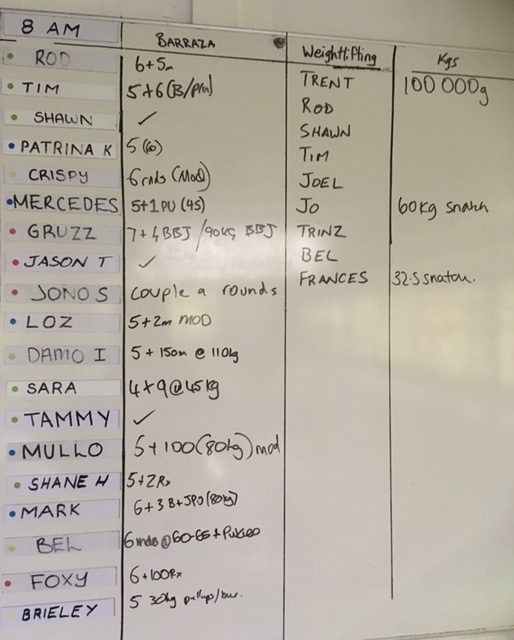 8 AM BARRAZA Weightlifting Kgs
ROD 6+5m TRENT 100 000g
TIM 5+6 ROD
SHAWN ✓ SHAWN
PATRINA K 5 TIM
CRISPY 6 rnds (Mod) JOEL
MERCEDES 5+1 PU (45) JO 60Kg snatch
GRUZZ 7+4 BBJ /90kg BBJ TRINZ
JASON T ✓ BEL
JONO S couple a rounds FRANCES 32.5 snatch.
LOZ 5+2m MOD
DAMO I 5 + 150m @ 110kg
SARA 4+9@45kg
TAMMY ✓
MULLO 5+100(80kg) mod
SHANE H 5+2Rx
MARK 6+3 (80kg)
BEL 6 rnds @60-65
FOXY 6+100Rx
BRIELEY 5 30kg pullups/